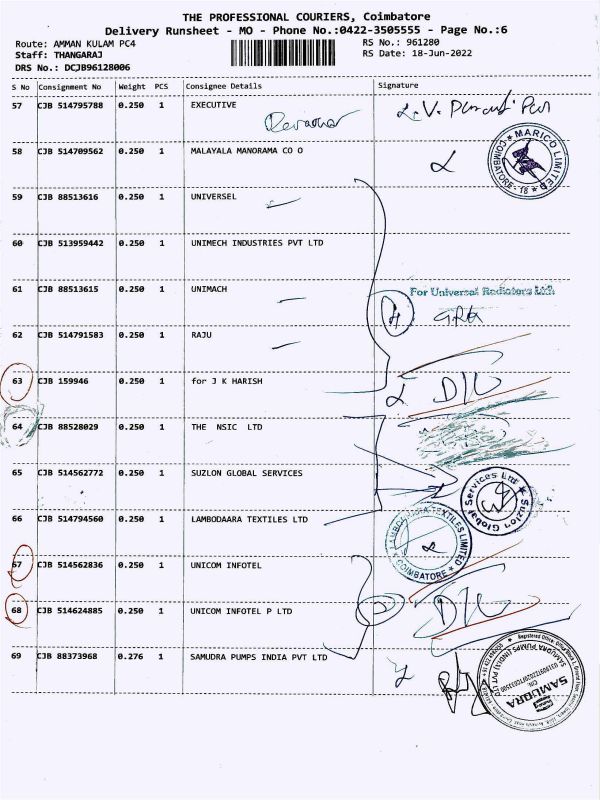 THE PROFESSIONAL COURIERS, Coimbatore
Delivery Runsheet - MO - Phone No.:0422-3505555 - Page No.:6
Route: AMMAN KULAM PC4
RS No.: 961280
Staff: THANGARAJ
RS Date: 18-Jun-2022
DRS No.: DCJB96128006
S No Consignment No Weight PCS Consignee Details Signature
57 CJB 514795788 0.250 1 EXECUTIVE
58 CJB 514709562 0.250 1 MALAYALA MANORAMA CO O
MARICO LIMITED
COIMBATORE - 18
59 CJB 88513616 0.250 1 UNIVERSEL
60 CJB 513959442 0.250 1 UNIMECH INDUSTRIES PVT LTD
61 CJB 88513615 0.250 1 UNIMACH
For Universal Radiators Ltd.
62 CJB 514791583 0.250 1 RAJU
63 CJB 159946 0.250 1 for J K HARISH
D/L
64 CJB 88528029 0.250 1 THE NSIC LTD
65 CJB 514562772 0.250 1 SUZLON GLOBAL SERVICES
Suzlon Global Services Ltd
66 CJB 514794560 0.250 1 LAMBODAARA TEXTILES LTD
LAMBODAARA TEXTILES LIMITED
COIMBATORE
67 CJB 514562836 0.250 1 UNICOM INFOTEL
68 CJB 514624885 0.250 1 UNICOM INFOTEL P LTD
D/L
69 CJB 88373968 0.276 1 SAMUDRA PUMPS INDIA PVT LTD
SAMUDRA PUMPS (INDIA) PVT LTD
SAMUDRA